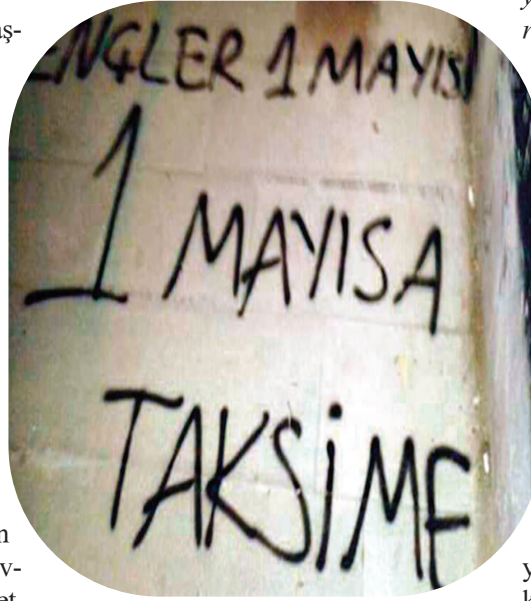 ENGLER 1 MAYIS
1 MAYISA
TAKSİME